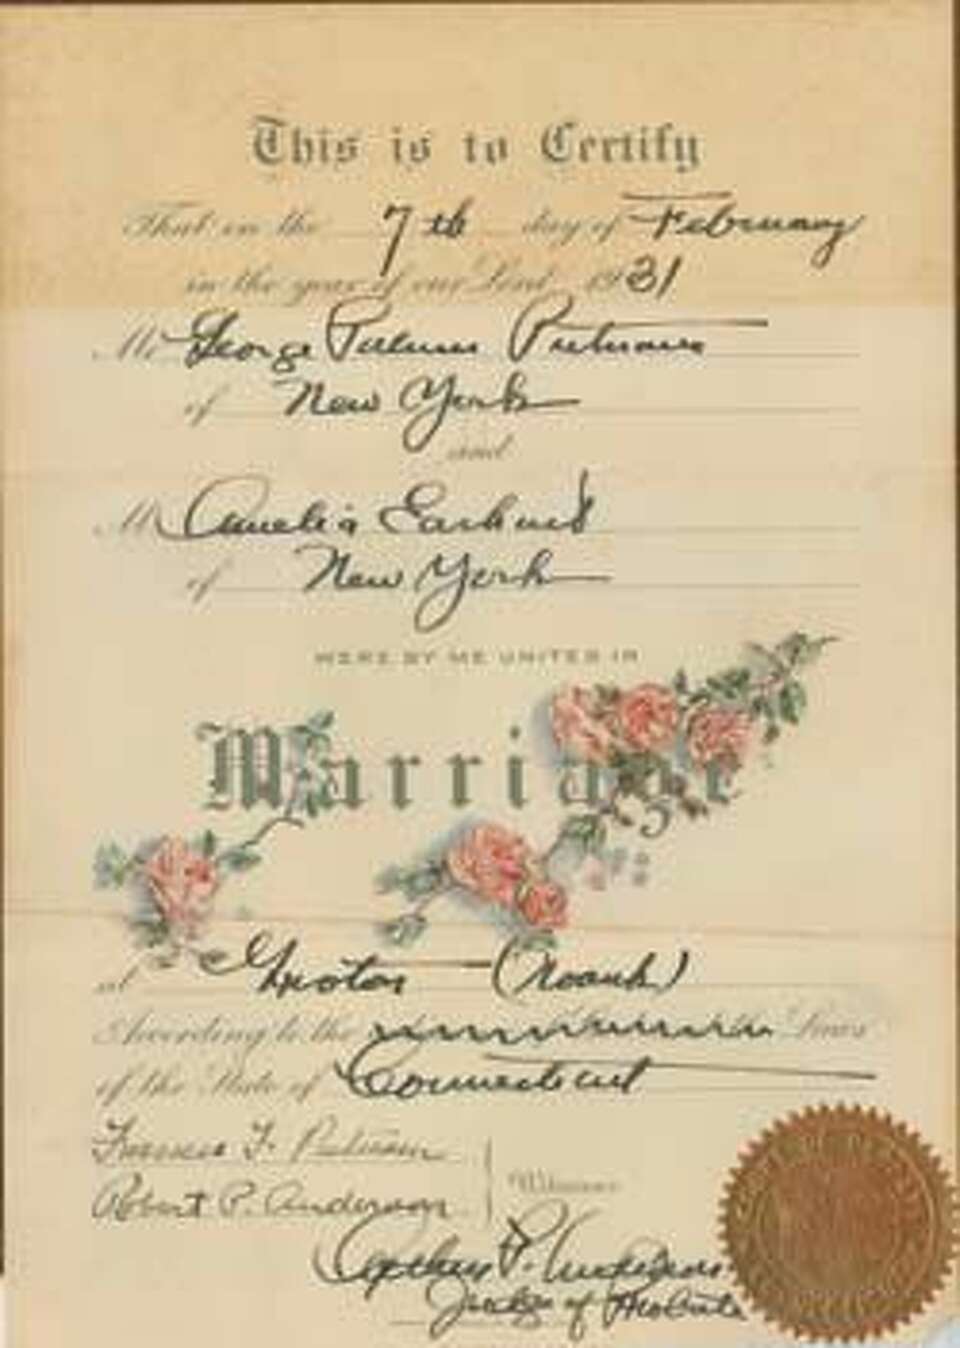 This is to Certify
That on the 7th day of February
in the year of our Lord 1931
Mr George Palmer Putnam
of New York
and
M Amelia Earhart
of New York
WERE BY ME UNITED IN
Marriage
at Groton (Noank)
According to the Laws
of the State of Connecticut
Frances F. Putnam
Robert P. Anderson
Witnesses
Arthur P. Anderson
Judge of Probate